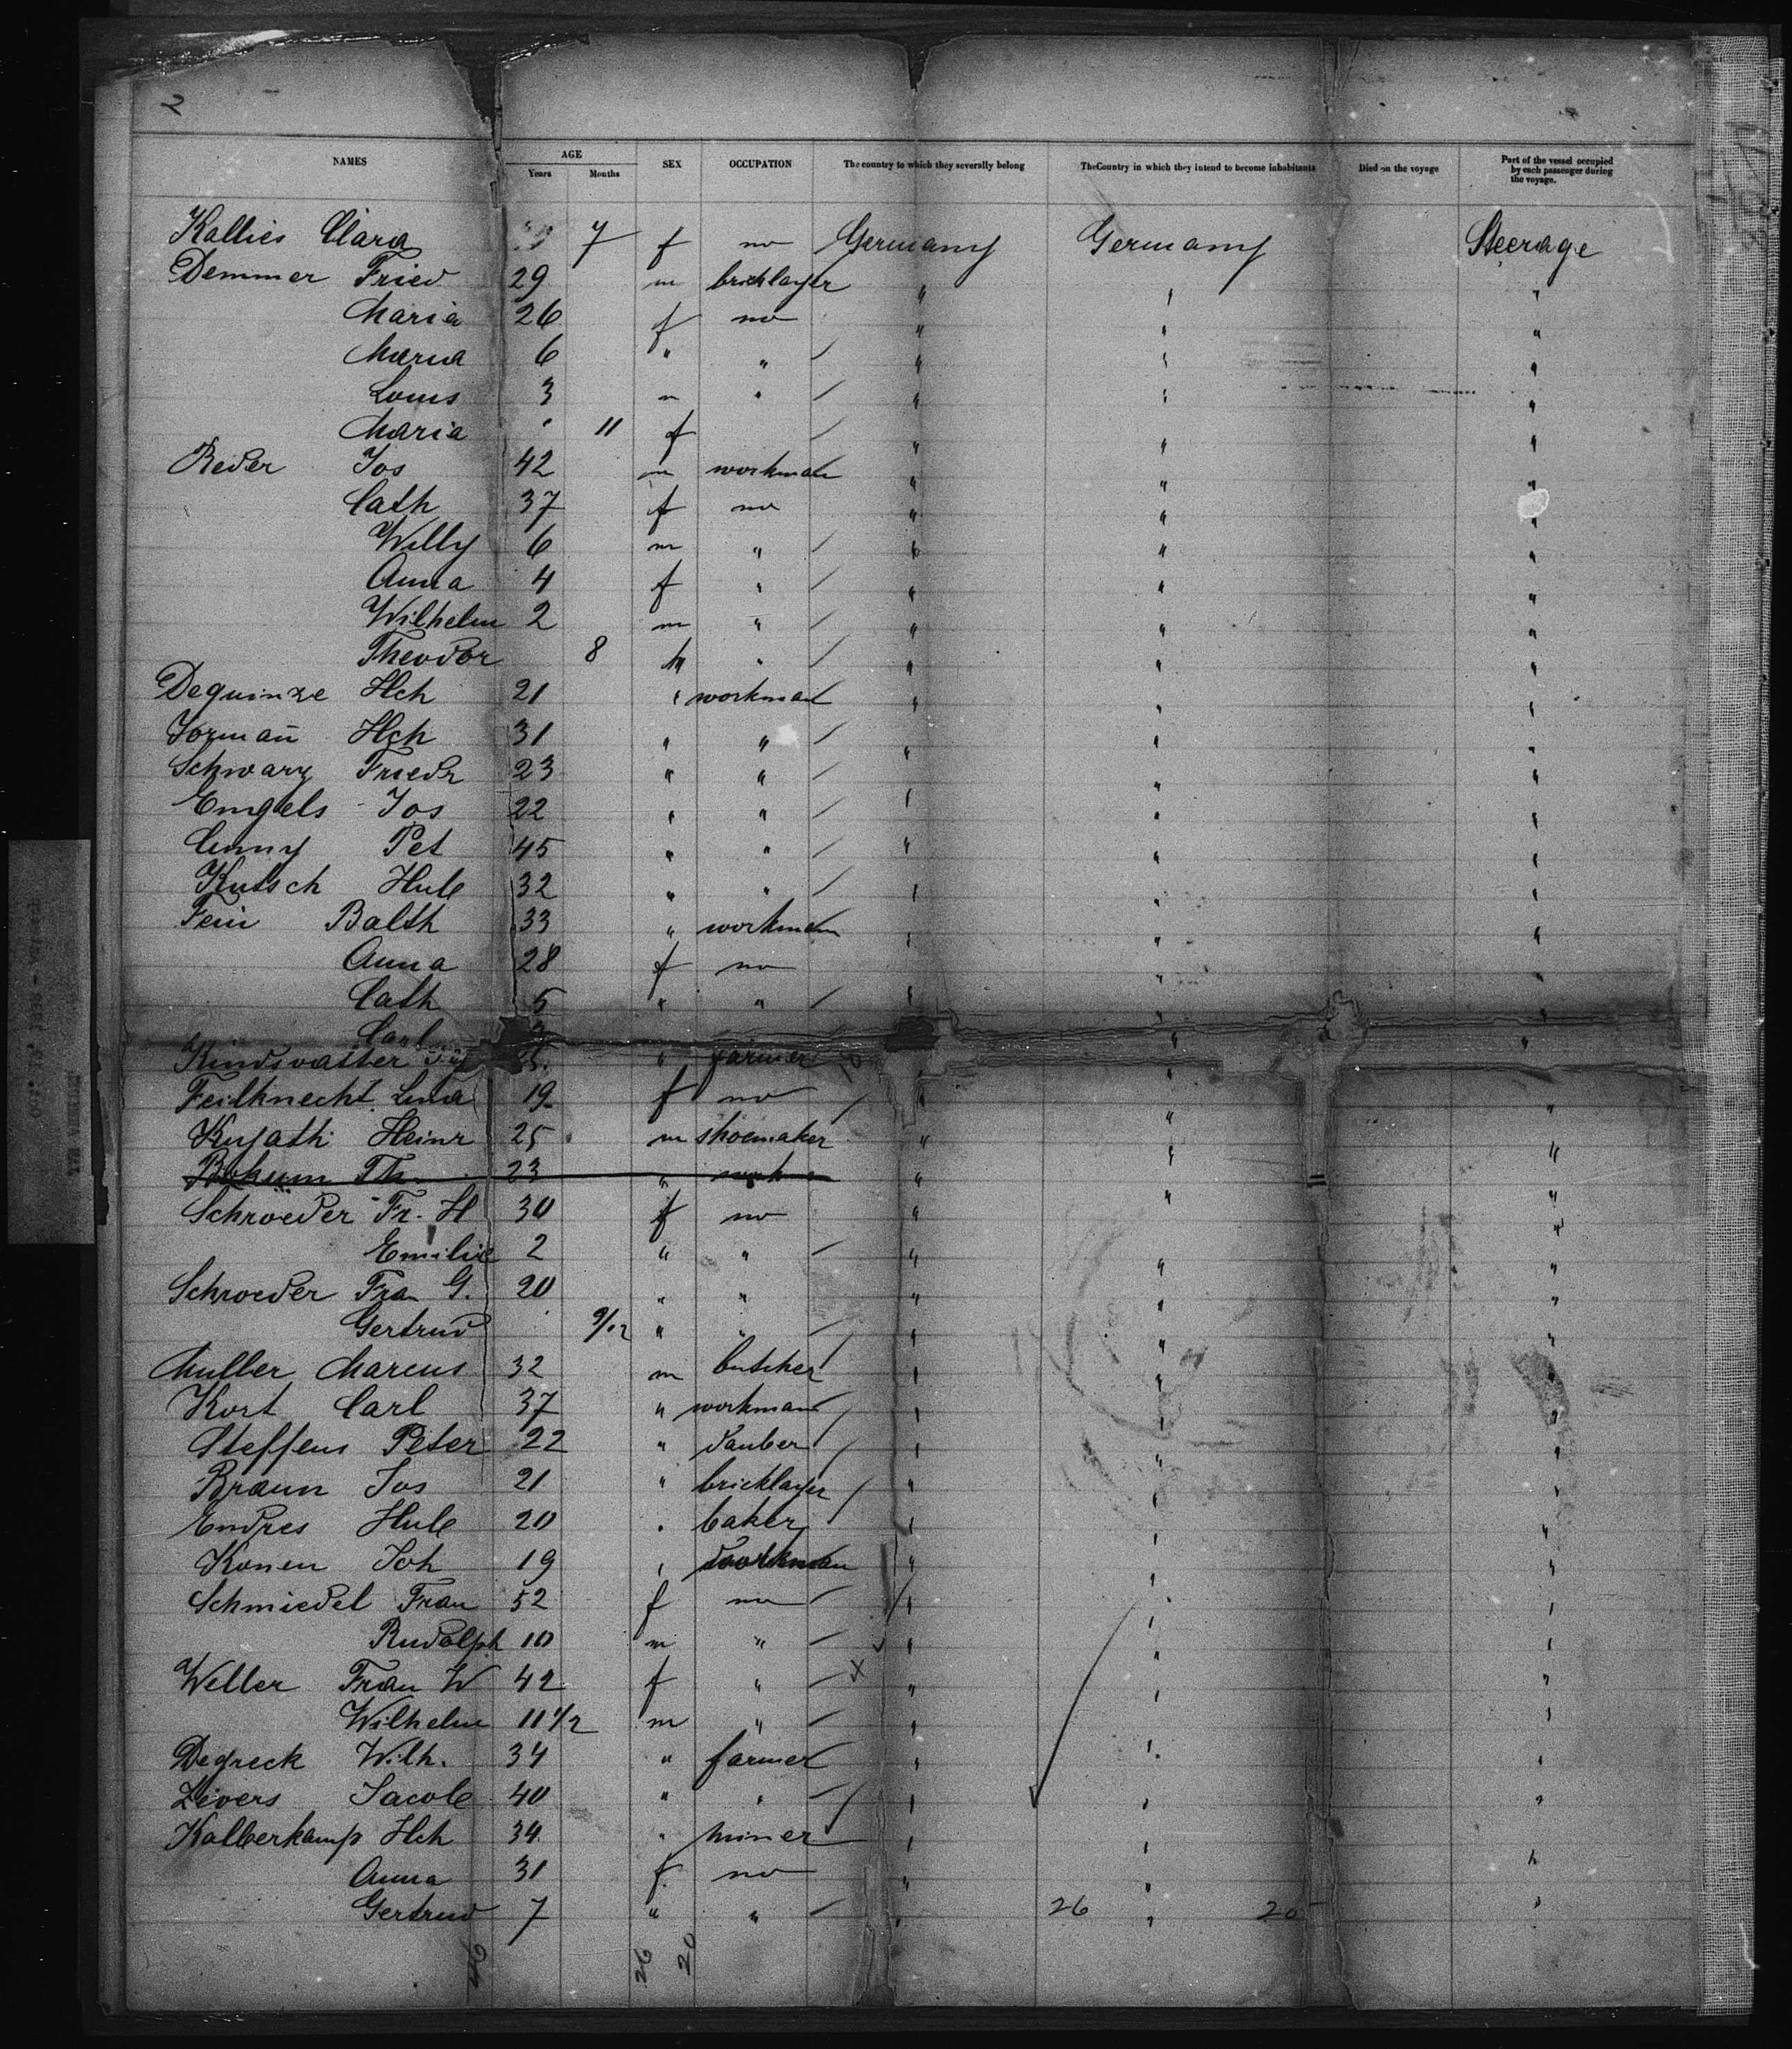 2
NAMES AGE Years Months SEX OCCUPATION The country to which they severally belong The Country in which they intend to become inhabitants Died on the voyage Part of the vessel occupied by each passenger during the voyage.
Kallies Clara 7 f no Germany Germany Steerage
Demmer Fried 29 m bricklayer " " "
Maria 26 f no " " "
Maria 6 " " " " "
Louis 3 m " " " "
Maria " 11 f " " "
Reder Jos 42 m workman " " "
Cath 37 f no " " "
Willy 6 m " " " "
Anna 4 f " " " "
Wilhelm 2 m " " " "
Theodor 8 m " " " "
Dequinze Hch 21 " workman " " "
Jormañ Hch 31 " " " " "
Schwarz Friedr 23 " " " " "
Engels Jos 22 " " " " "
Cunny Pet 45 " " " " "
Kutsch Hub 32 " " " " "
Fein Balth 33 " workman " " "
Anna 28 f no " " "
Cath 5 " " " " "
Carl
Kindsvatter " farmer " " "
Feilknecht Lina 19 f no " " "
Kujath Heinr 25 m shoemaker " " "
Bohum Th. 23 " " " "
Schroeder Fr. H 30 f no " "
Emilie 2 " " " " "
Schroeder Frau G. 20 " " " " "
Gertrud 9/12 " " " " "
Muller Marcus 32 m butcher " " "
Kort Carl 37 " workman " " "
Steffens Peter 22 " dauber " " "
Braun Jos 21 " bricklayer " " "
Endres Hub 20 " baker " " "
Konen Joh 19 " workman " " "
Schmiedel Frau 52 f no " " "
Rudolph 10 m " " " "
Weller Frau W 42 f " " " "
Wilhelm 11 1/2 m " " " "
Degreck Wilh. 34 " farmer " " "
Zivers Jacob 40 " " " " "
Kalberkamp Hch 34 " miner " " "
Anna 31 f no " " "
Gertrud 7 " " " 26 " 20 "
46 26 20